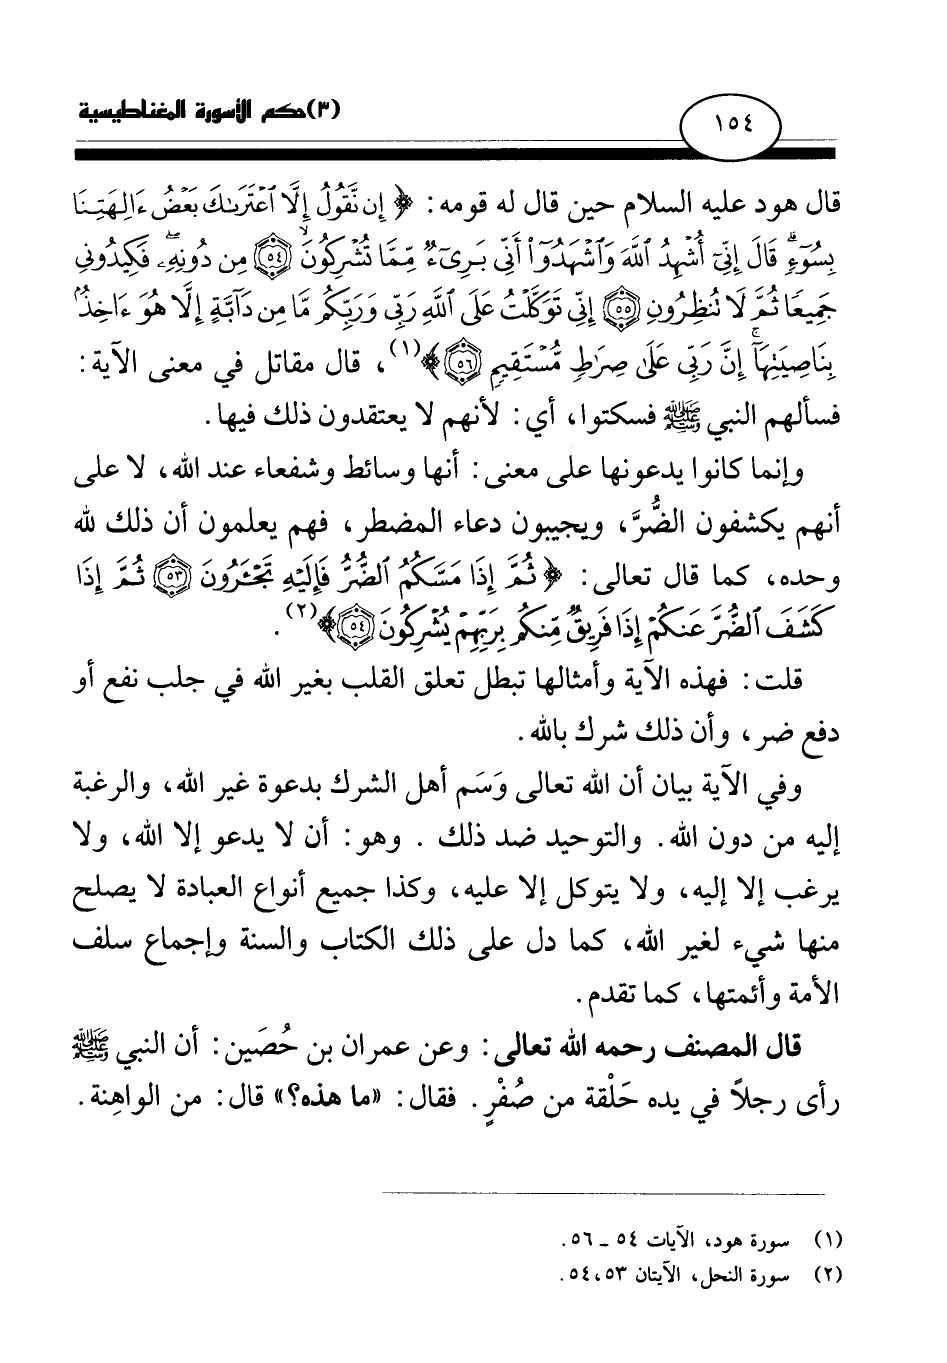 (٣) حكم الأسورة المغناطيسية
١٥٤
قال هود عليه السلام حين قال له قومه: ﴿ إِن نَّقُولُ إِلَّا ٱعْتَرَىٰكَ بَعْضُ ءَالِهَتِنَا
بِسُوٓءٍۗ قَالَ إِنِّيٓ أُشْهِدُ ٱللَّهَ وَٱشْهَدُوٓا۟ أَنِّي بَرِيٓءٌ مِّمَّا تُشْرِكُونَ ٥٤ مِن دُونِهِۦۖ فَكِيدُونِي
جَمِيعًا ثُمَّ لَا تُنظِرُونِ ٥٥ إِنِّي تَوَكَّلْتُ عَلَى ٱللَّهِ رَبِّي وَرَبِّكُم مَّا مِن دَآبَّةٍ إِلَّا هُوَ ءَاخِذٌۢ
بِنَاصِيَتِهَآۚ إِنَّ رَبِّي عَلَىٰ صِرَٰطٍ مُّسْتَقِيمٍ ٥٦ ﴾(١)، قال مقاتل في معنى الآية:
فسألهم النبي ﷺ فسكتوا، أي: لأنهم لا يعتقدون ذلك فيها.
وإنما كانوا يدعونها على معنى: أنها وسائط وشفعاء عند الله، لا على
أنهم يكشفون الضُّرَّ، ويجيبون دعاء المضطر، فهم يعلمون أن ذلك لله
وحده، كما قال تعالى: ﴿ ثُمَّ إِذَا مَسَّكُمُ ٱلضُّرُّ فَإِلَيْهِ تَجْـَٔرُونَ ٥٣ ثُمَّ إِذَا
كَشَفَ ٱلضُّرَّ عَنكُمْ إِذَا فَرِيقٌ مِّنكُم بِرَبِّهِمْ يُشْرِكُونَ ٥٤ ﴾(٢).
قلت: فهذه الآية وأمثالها تبطل تعلق القلب بغير الله في جلب نفع أو
دفع ضر، وأن ذلك شرك بالله.
وفي الآية بيان أن الله تعالى وَسَم أهل الشرك بدعوة غير الله، والرغبة
إليه من دون الله. والتوحيد ضد ذلك . وهو: أن لا يدعو إلا الله، ولا
يرغب إلا إليه، ولا يتوكل إلا عليه، وكذا جميع أنواع العبادة لا يصلح
منها شيء لغير الله، كما دل على ذلك الكتاب والسنة وإجماع سلف
الأمة وأئمتها، كما تقدم.
قال المصنف رحمه الله تعالى: وعن عمران بن حُصَين: أن النبي ﷺ
رأى رجلاً في يده حَلْقة من صُفْرٍ. فقال: «ما هذه؟» قال: من الواهِنة.
(١) سورة هود، الآيات ٥٤ ـ ٥٦.
(٢) سورة النحل، الآيتان ٥٣، ٥٤.